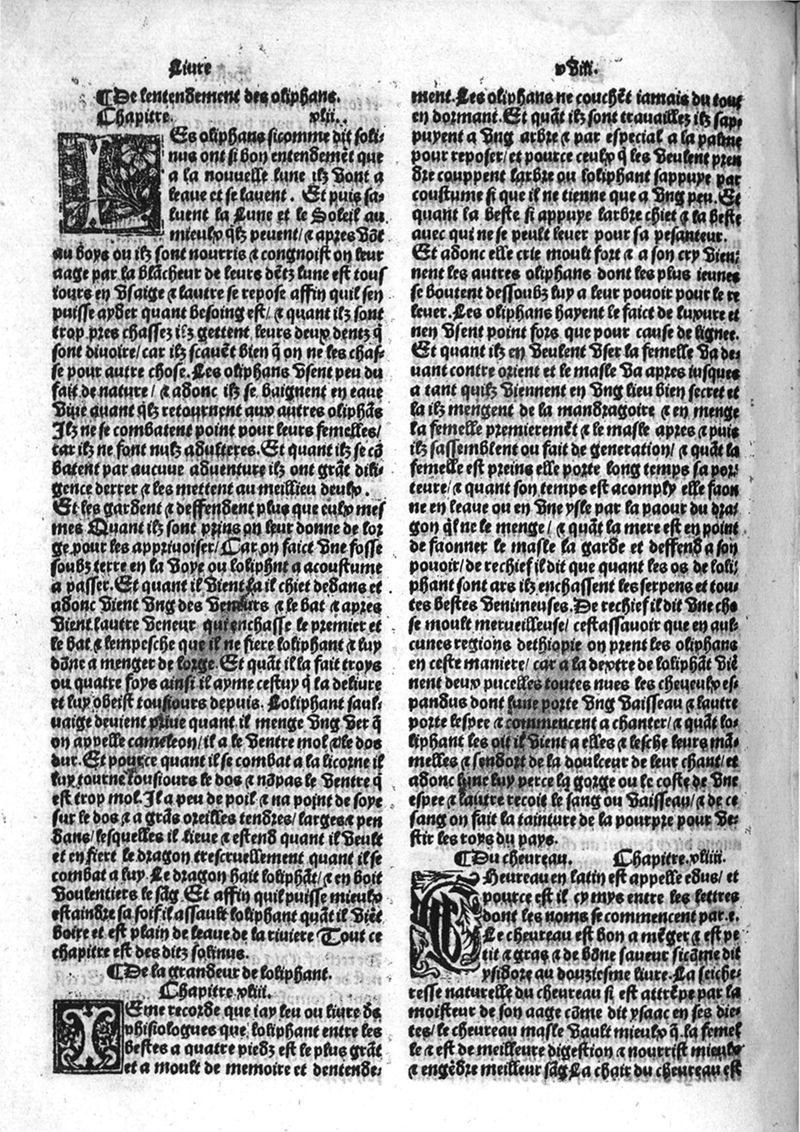 Liure
vViii.
¶De lentendement des oliphans.
Chapitre. xlii.
LEs oliphans sicomme dit soli-
nus ont si bon entendemẽt que
a la nouuelle lune ilz vont a
leaue et se lauent. Et puis sa-
luent la Lune et le Soleil au
mieulx qlz peuent/ & apres võt
au boys ou ilz sont nourris & congnoist on leur
aage par la blãcheur de leurs dẽtz lune est tous
iours en vsaige & lautre se repose affin quil sen
puisse ayder quant besoing est/ & quant ilz sont
trop pres chassez ilz gettent leurs deux dentz q̃
sont diuoire/ car ilz scauẽt bien q̃ on ne les chas-
se pour autre chose. Les oliphans vsent peu du
fait de nature/ & adonc ilz se baignent en eaue
viue auant qlz retournent aux autres oliphãs
Ilz ne se combatent point pour leurs femelles/
car ilz ne font nulz adulteres. Et quant ilz se cõ
batent par aucune aduenture ilz ont grãt dili-
gence derrer & les mettent au meillieu deulx.
Et les gardent & deffendent plus que eulx mes
mes Quant ilz sont prins on leur donne de lor
ge pour les appriuoiser/ Car on faict vne fosse
soubz terre en la voye ou loliphnt a acoustume
a passer. Et quant il vient la il chiet dedans et
adonc vient vng des veneurs & le bat & apres
vient lautre veneur qui enchasse le premier et
le bat & lempesche que il ne fiere loliphant & luy
dõne a menger de lorge. Et quãt il la fait troys
ou quatre foys ainsi il ayme cestuy q̃ la deliure
et luy obeist tousiours depuis. Loliphant saul-
uaige deuient priue quant il menge vng ver q̃
on appelle cameleon/ il a le ventre mol & le dos
dur. Et pource quant il se combat a la licorne il
luy tourne tousiours le dos & nõpas le ventre q̃
est trop mol. Il a peu de poil & na point de soye
sur le dos & a grãs oreilles tendres/ larges & pen
dans/ lesquelles il lieue & estend quant il veult
et en fiert le dragon trescruellement quant il se
combat a luy. Le dragon hait loliphãt/ & en boit
voulentiers le sãg. Et affin quil puisse mieulx
estaindre sa soif il assault loliphant quãt il viẽt
boire et est plain de leaue de la riuiere Tout ce
chapitre est des ditz solinus.
¶De la grandeur de loliphant.
Chapitre xliii.
IEme recorde que iay leu ou liure ds
phisiologues que loliphant entre les
bestes a quatre piedz est le plus grãt
et a moult de memoire et dentende-
ment. Les oliphans ne couchẽt iamais du tout
en dormant. Et quãt ilz sont trauaillez ilz sap-
puyent a vng arbre & par especial a la palme
pour reposer/ et pource ceulx q̃ les veulent pren
dre couppent larbre ou loliphant sappuye par
coustume si que il ne tienne que a vng peu. Et
quant la beste si appuye larbre chiet & la beste
auec qui ne se peult leuer pour sa pesanteur.
Et adonc elle crie moult fort & a son cry vien-
nent les autres oliphans dont les plus ieunes
se boutent dessoubz luy a leur pouoir pour le re
leuer. Les oliphans hayent le faict de luxure et
nen vsent point fors que pour cause de lignee.
Et quant ilz en veulent vser la femelle va de-
uant contre orient et le masle va apres iusques
a tant quilz viennent en vng lieu bien secret et
la ilz mengent de la mandragoire & en menge
la femelle premieremẽt & le masle apres & puis
ilz sassemblent ou fait de generation/ & quãt la
femelle est preins elle porte long temps sa por-
teure/ & quant son temps est acomply elle faon
ne en leaue ou en vne ysle par la paour du dra-
gon ql ne le menge/ & quãt la mere est en point
de faonner le masle la garde et deffend a son
pouoir/ de rechief il dit que quant les os de loli-
phant sont ars ilz enchassent les serpens et tou-
tes bestes venimeuses. De rechief il dit vne cho
se moult merueilleuse/ cestassauoir que en aul-
cunes regions dethiopie on prent les oliphans
en ceste maniere/ car a la dextre de loliphãt viẽ
nent deux pucelles toutes nues les cheueulx es-
pandus dont lune porte vng vaisseau & lautre
porte lespee & commencent a chanter/ & quãt lo-
liphant les oit il vient a elles & lesche leurs mã-
melles & sendort de la doulceur de leur chant/ et
adonc lune luy perce la gorge ou le coste de vne
espee & lautre recoit le sang ou vaisseau/ & de ce
sang on fait la tainture de la pourpre pour ve-
stir les roys du pays.
¶Du cheureau. Chapitre.xliiii.
CHeureau en latin est appelle edus/ et
pource est il cy mys entre les lettres
dont les noms se commencent par.e.
Le cheureau est bon a mẽger & est pe
tit & gras & de bõne saueur sicõme dit
ysidore au douziesme liure. La seiche-
resse naturelle du cheureau si est attrẽpe par la
moisteur de son aage cõme dit ysaac en ses die-
tes/ le cheureau masle vault mieulx q̃ la femel
le & est de meilleure digestion & nourrist mieulx
& engẽdre meilleur sãg La chair du cheureau est